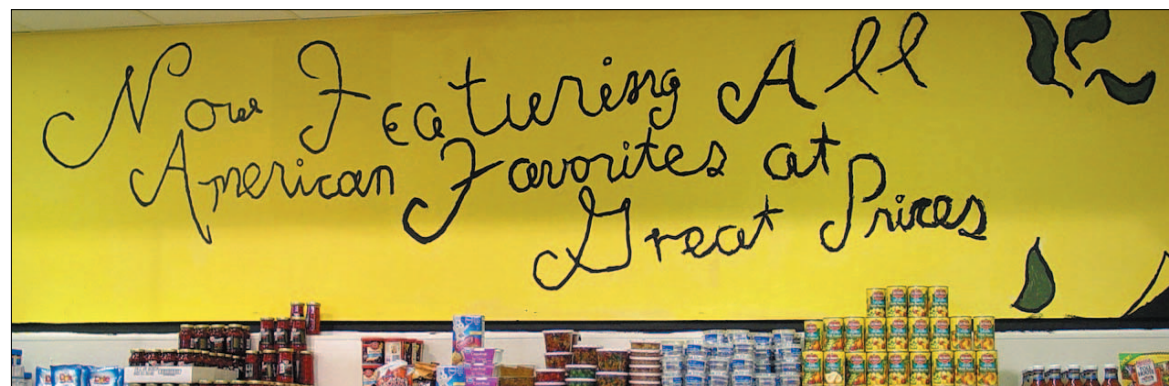 Now Featuring All
American Favorites at
Great Prices
Dole